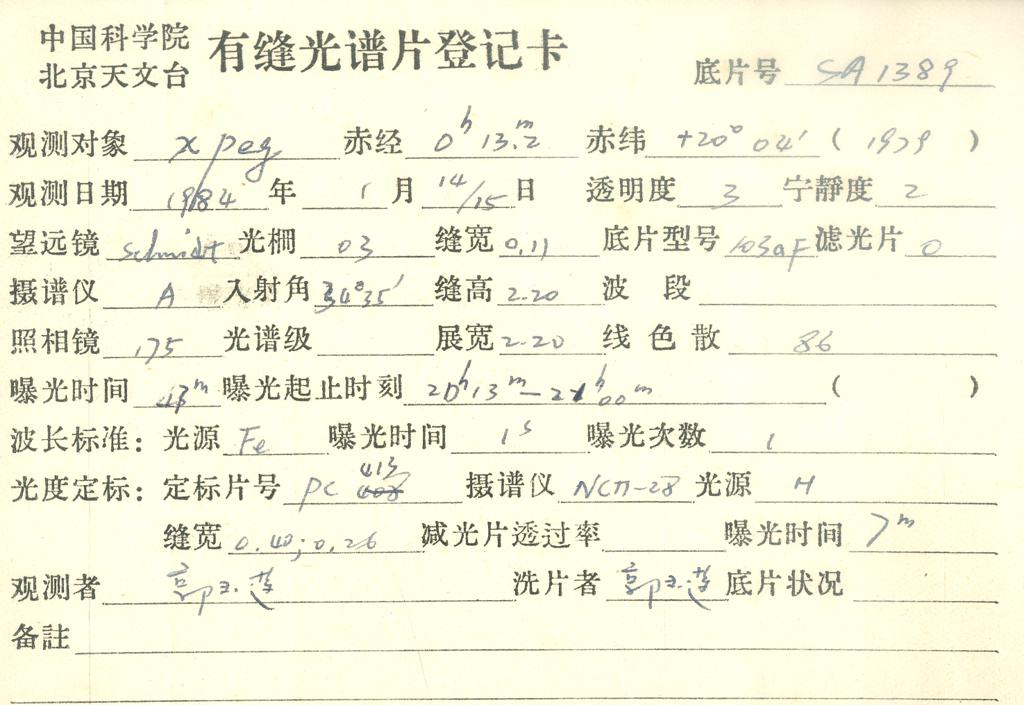 中国科学院
北京天文台
有缝光谱片登记卡
底片号 SA 1389
观测对象 x peg 赤经 0ʰ 13.ᵐ2 赤纬 +20° 04′ ( 1979 )
观测日期 1984 年 1 月 14/15 日 透明度 3 宁静度 2
望远镜 Schmidt 光栅 03 缝宽 0.11 底片型号 103aF 滤光片 0
摄谱仪 A 入射角 34°35′ 缝高 2.20 波段
照相镜 175 光谱级 展宽 2.20 线色散 86
曝光时间 ᵐ 曝光起止时刻 20ʰ13ᵐ—21ʰ00ᵐ ( )
波长标准: 光源 Fe 曝光时间 1ˢ 曝光次数 1
光度定标: 定标片号 PC 413 摄谱仪 NCП-28 光源 H
缝宽 0.40; 0.26 减光片透过率 曝光时间 7ᵐ
观测者 郭玉莲 洗片者 郭玉莲 底片状况
备註